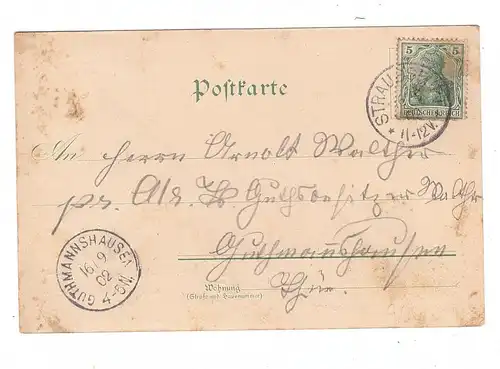 Postkarte
5
DEUTSCHES REICH
STRAU
* 11-12V.
An Herrn Arnold Walther
pr. Adr. Gutsbesitzer Walther
Guthmannshausen
Thür.
GUTHMANNSHAUSEN
16 9
02
4-5N.
Wohnung
(Straße und Hausnummer)